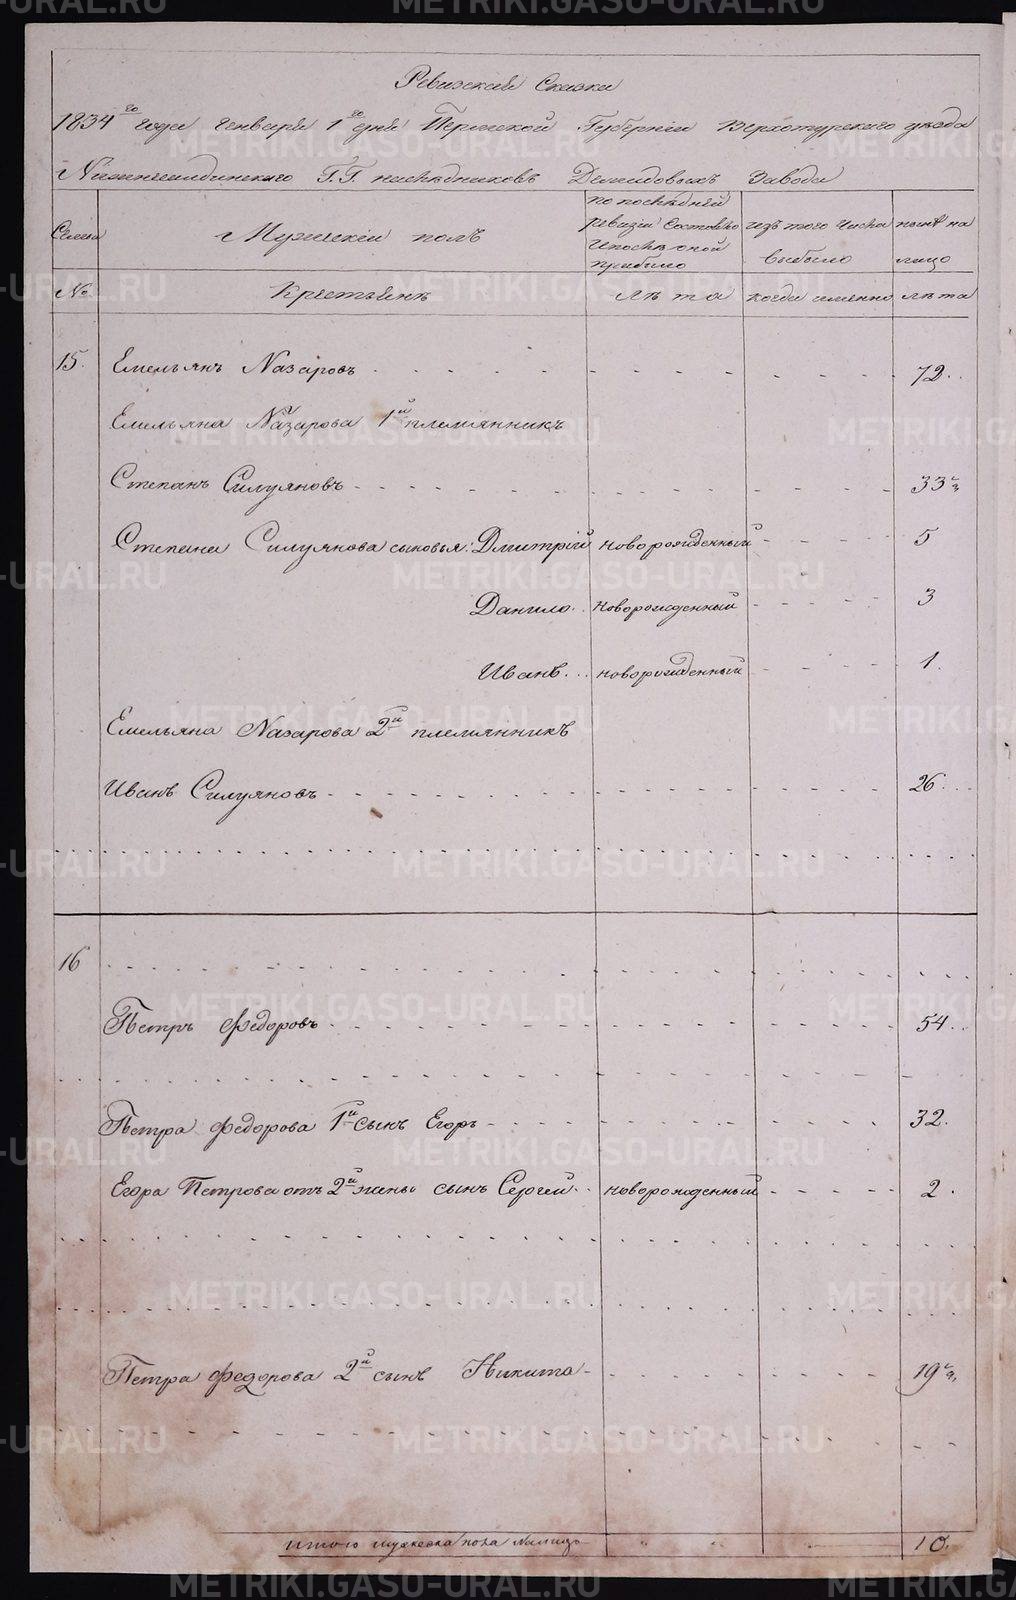 Ревизская Сказка
1834го года Генваря 1го дня Пермской Губернии Верхотурского уезда
Нижнетагильского Г.Г. наследниковъ Демидовыхъ Завода
Семьи
Мужескiй полъ
по последней ревизiи состояло и после оной прибыло
изъ того числа выбыло
ныне на лицо
№
Крестьянъ
лета
когда именно
лета
15. Емельянъ Назаровъ 72.
Емельяна Назарова 1й племянникъ
Степанъ Силуяновъ 33
Степана Силуянова сыновья: Дмитрiй новорожденный 5
Данило новорожденный 3
Иванъ новорожденный 1.
Емельяна Назарова 2й племянникъ
Иванъ Силуяновъ 26
16
Петръ Федоровъ 54
Петра Федорова 1й сынъ Егоръ 32.
Егора Петрова отъ 2й жены сынъ Сергей новорожденный 2.
Петра Федорова 2й сынъ Никита 19
Итого мужеска пола налицо 10.
METRIKI.GASO-URAL.RU